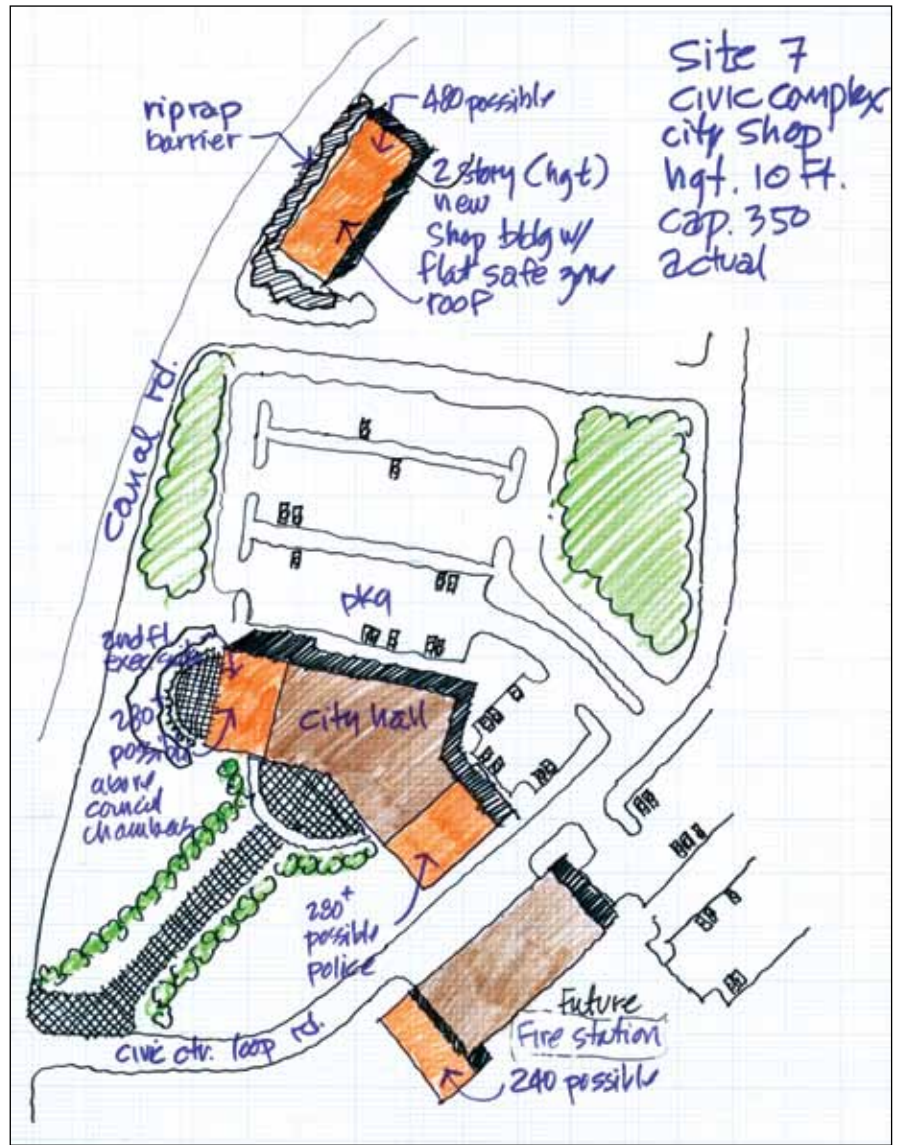 Site 7
civic complex
city shop
hgt. 10 Ft.
cap. 350
actual
riprap
barrier
480 possible
2 story (hgt)
new
shop bldg w/
flat safe zone
roof
canal rd.
pkg
2nd fl
exec suite
280+
possible
above
council
chambers
city hall
280+
possible
police
Future
Fire station
240 possible
civic ctr. loop rd.